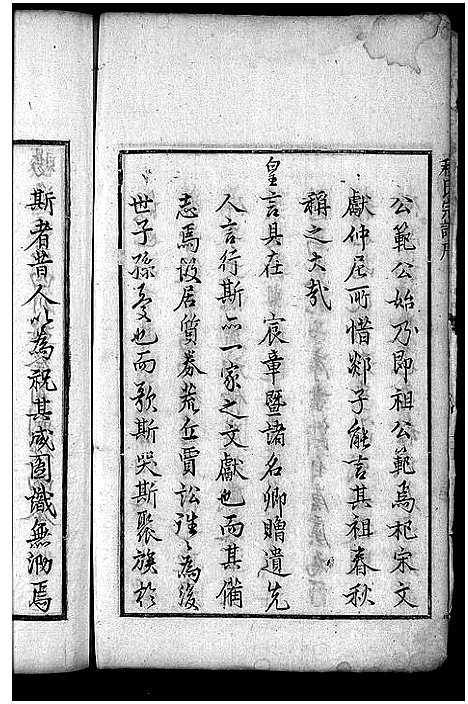 公範公始乃即祖公範焉杞宋文
獻仲尼所惜郯子能言其祖春秋
稱之大哉
皇言具在宸章暨諸名卿贈遺先
人言行斯亦一家之文獻也而其備
志焉後居質券荒丘賈訟往々為後
世子孫憂也而歌斯哭斯聚族於
斯者昔人以為祝其咸固識無泐焉